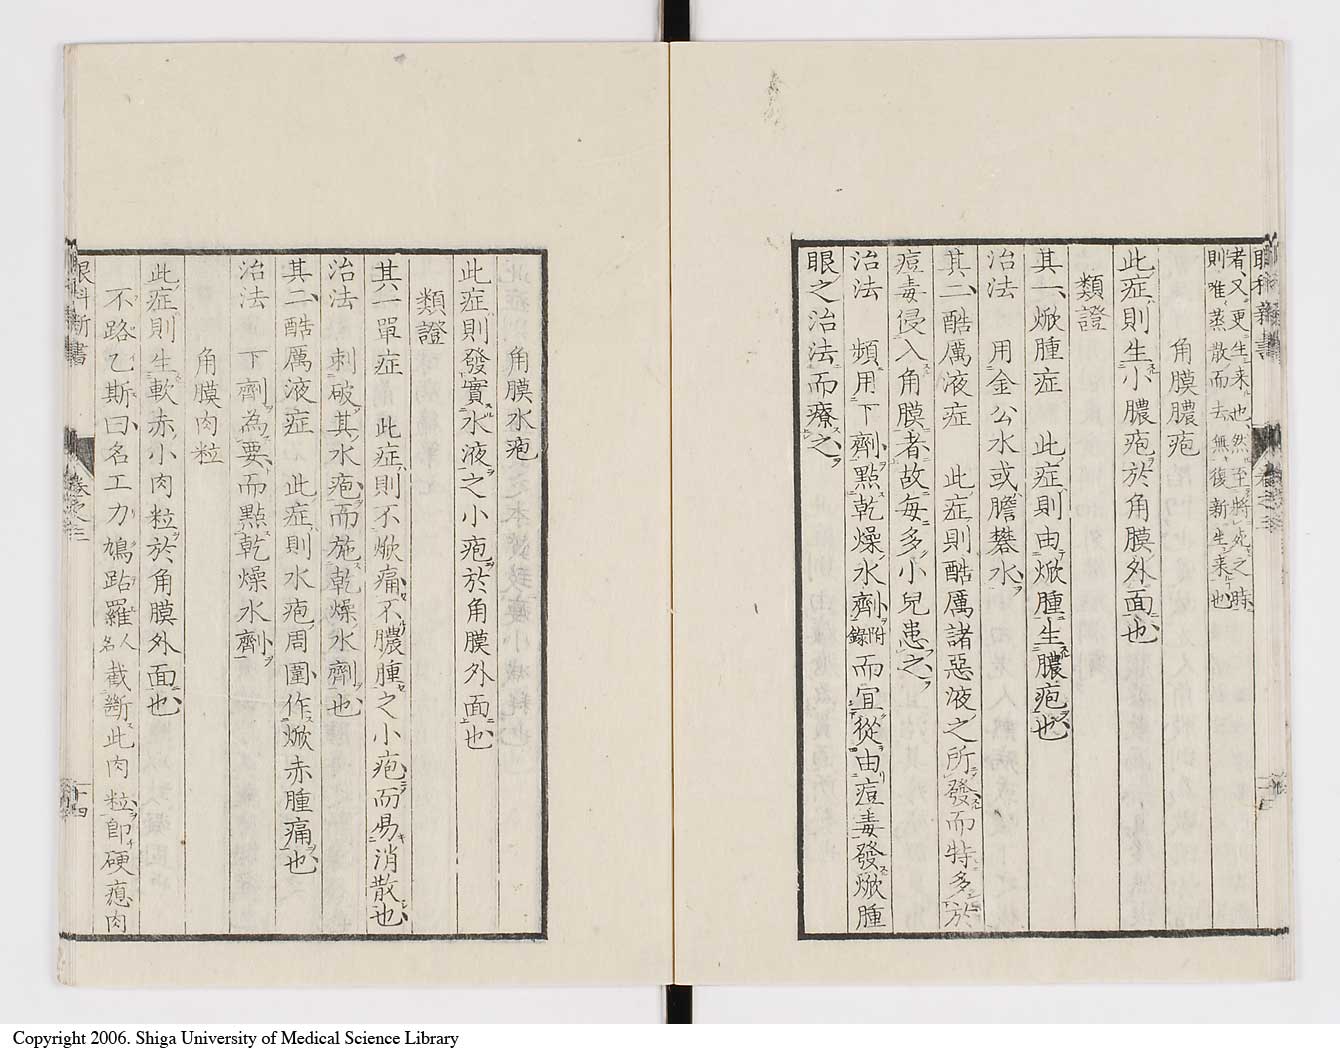 者、又更生来也、然至將死之時
則唯蒸散而去無復新生来也
角膜膿疱
此症則生小膿疱於角膜外面也
類證
其一、焮腫症 此症則由焮腫生膿疱也
治法 用金公水或膽礬水
其二、酷厲液症 此症則酷厲諸惡液之所發而特多於
痘毒侵入角膜者故每多小兒患之
治法 頻用下劑點乾燥水劑附錄而宜從由痘毒發焮腫
眼之治法而療之
角膜水疱
此症則發實水液之小疱於角膜外面也
類證
其一單症 此症則不焮痛不膿腫之小疱而易消散也
治法 刺破其水疱而施乾燥水劑也
其二、酷厲液症 此症則水疱周圍作焮赤腫痛也
治法 下劑為要而點乾燥水劑
角膜肉粒
此症則生軟赤小肉粒於角膜外面也
不路乙斯曰名工力鳩跕羅人名截斷此肉粒即硬瘜肉
眼科新書 卷之三 二十四
Copyright 2006. Shiga University of Medical Science Library